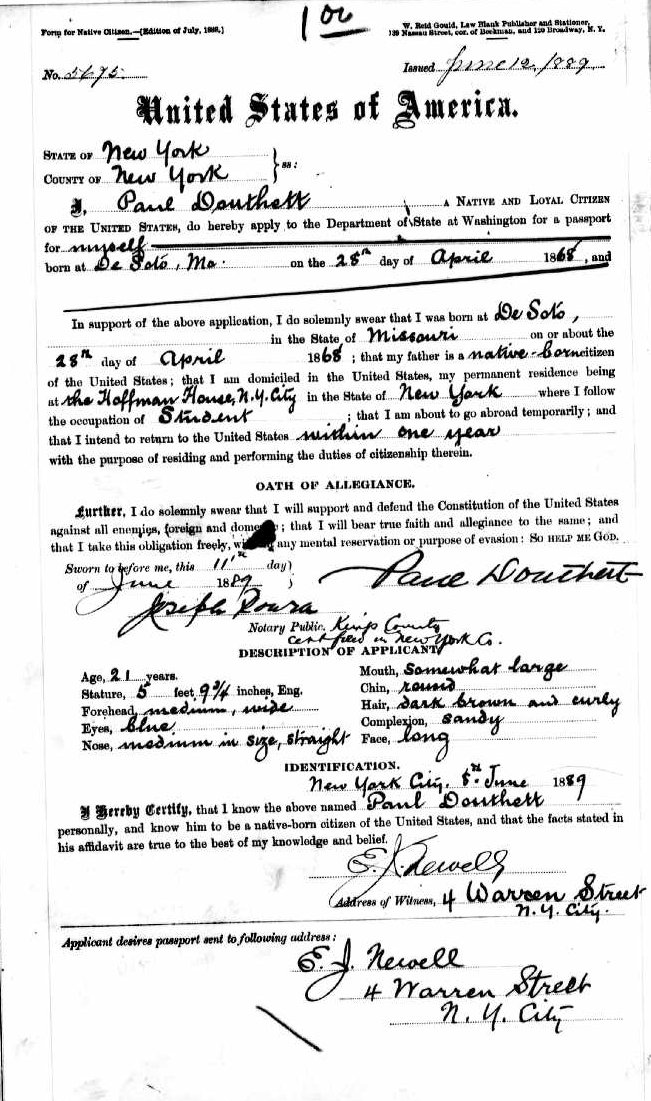 1 00
Form for Native Citizen.—(Edition of July, 1888.)
W. Reid Gould, Law Blank Publisher and Stationer,
139 Nassau Street, cor. of Beekman, and 120 Broadway, N. Y.
No. 5675
Issued June 12, 1889
United States of America.
STATE OF New York
COUNTY OF New York } ss:
I, Paul Douthett, A NATIVE AND LOYAL CITIZEN
OF THE UNITED STATES, do hereby apply to the Department of State at Washington for a passport
for myself
born at De Soto, Mo. on the 28th day of April 1868, and
In support of the above application, I do solemnly swear that I was born at De Soto,
in the State of Missouri on or about the
28th day of April 1868; that my father is a native-born citizen
of the United States; that I am domiciled in the United States, my permanent residence being
at the Hoffman House, N.Y. City in the State of New York where I follow
the occupation of Student; that I am about to go abroad temporarily; and
that I intend to return to the United States within one year
with the purpose of residing and performing the duties of citizenship therein.
OATH OF ALLEGIANCE.
Further, I do solemnly swear that I will support and defend the Constitution of the United States
against all enemies, foreign and domestic; that I will bear true faith and allegiance to the same; and
that I take this obligation freely, any mental reservation or purpose of evasion: SO HELP ME GOD.
Sworn to before me, this 11th day
of June 1889 }
Paul Douthett
Joseph
Notary Public. Kings County
Cert filed in New York Co.
DESCRIPTION OF APPLICANT
Age, 21 years. Mouth, somewhat large
Stature, 5 feet 9 3/4 inches, Eng. Chin, round
Forehead, medium, wide Hair, dark brown and curly
Eyes, blue Complexion, sandy
Nose, medium in size, straight Face, long
IDENTIFICATION.
New York City, 8th June 1889
I Hereby Certify, that I know the above named Paul Douthett
personally, and know him to be a native-born citizen of the United States, and that the facts stated in
his affidavit are true to the best of my knowledge and belief.
E. J. Newell
Address of Witness, 4 Warren Street
N. Y. City.
Applicant desires passport sent to following address:
E. J. Newell
4 Warren Street
N. Y. City